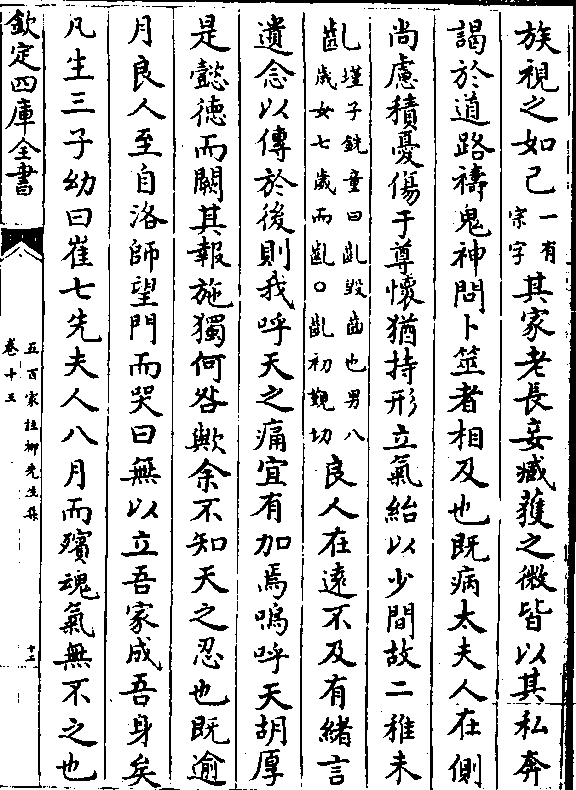 族視之如己一有宗字其家老長妾臧獲之微皆以其私奔
謁於道路禱鬼神問卜筮者相及也既病太夫人在側
尚慮積憂傷于尊懷猶持形立氣紿以少間故二稚未
齓瑾子銑童曰齓毀齒也男八歲女七歲而齓○齓初覲切良人在遠不及有緒言
遺念以傳於後則我呼天之痛宜有加焉嗚呼天胡厚
是懿德而闕其報施獨何咎歟余不知天之忍也既逾
月良人至自洛師望門而哭曰無以立吾家成吾身矣
凡生三子幼曰崔七先夫人八月而殯魂氣無不之也
欽定四庫全書
五百家註柳先生集
卷十三
十二